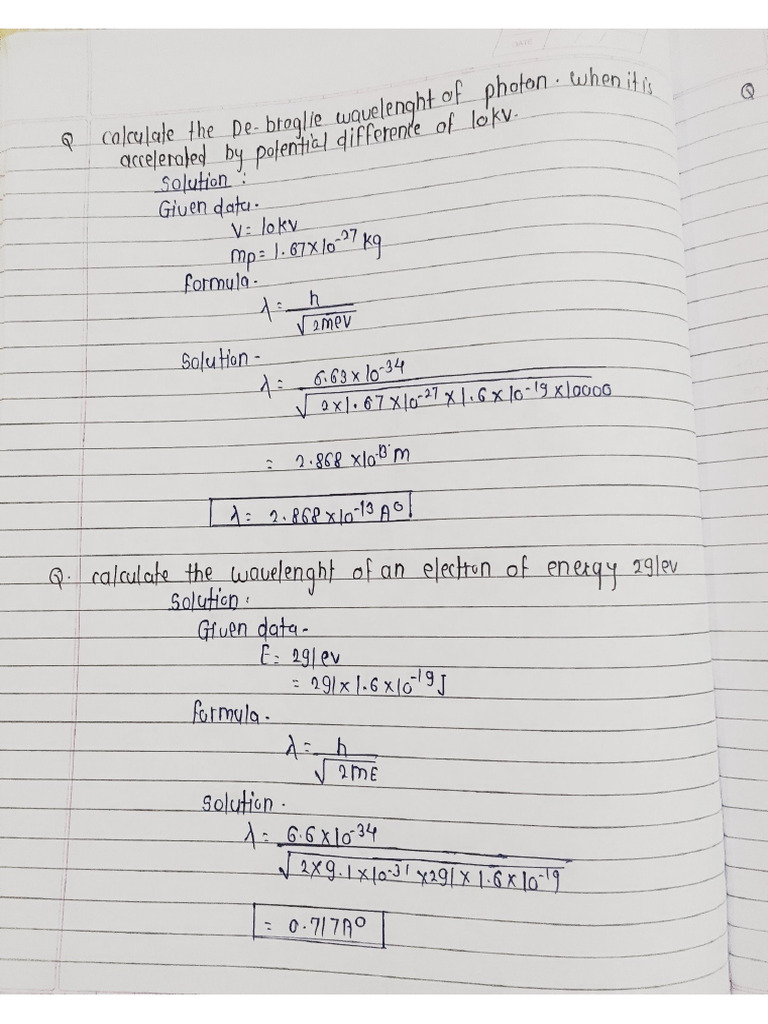 Q
Q calculate the De-broglie wavelenght of photon. when it is
accelerated by potential difference of 10kv.
solution :
Given data.
V= 10kv
mp= 1.67×10-27 kg
formula.
λ= h
√2mev
solution -
λ= 6.63 × 10-34
√2×1.67×10-27 × 1.6×10-19 ×10000
= 2.868 ×10-13 m
λ= 2.868×10-13 A°
Q. calculate the wavelenght of an electron of energy 291ev
solution.
Given data -
E= 291ev
= 291×1.6×10-19 J
formula.
λ= h
√2mE
solution.
λ= 6.6×10-34
√2×9.1×10-31 ×291× 1.6×10-19
= 0.717A°